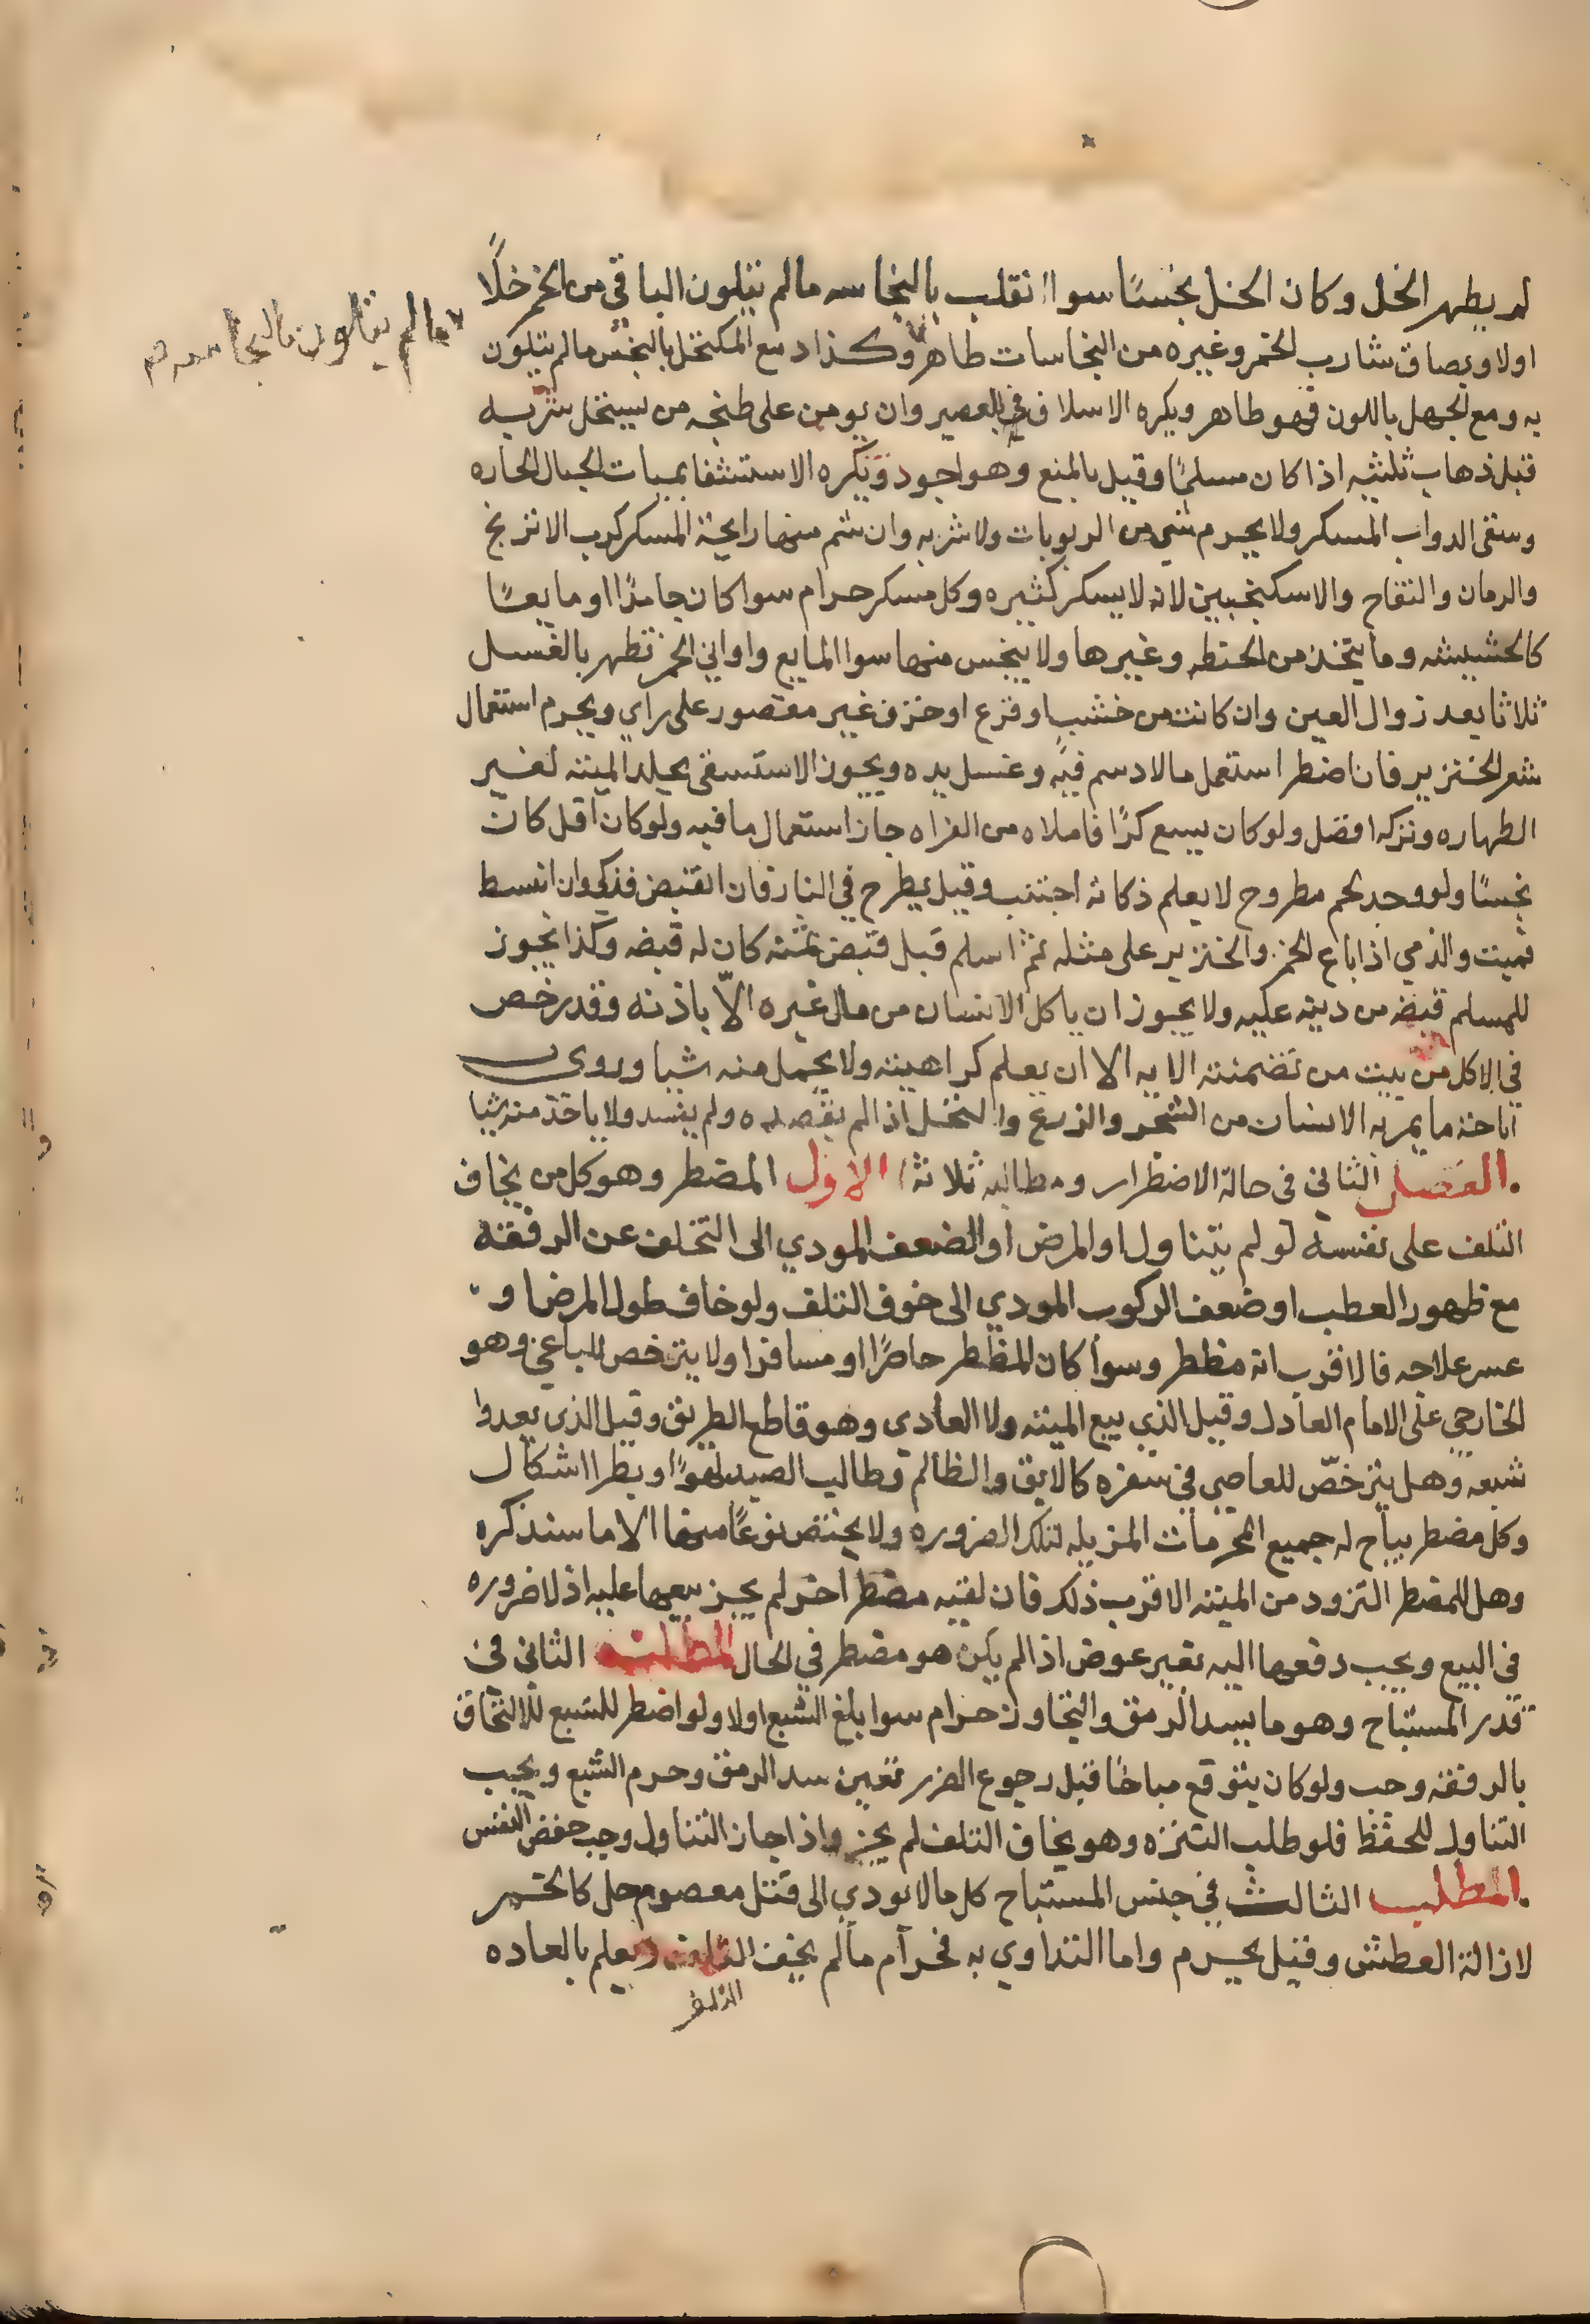 لم يطهر الخل وكان الخل نجسًا سوا انقلب بالنجاسه مالم يتلون الباقي من الخمر خلًا
اولا وبصاق شارب الخمر وغيره من النجاسات طاهر وكذا دمع المكتحل بالنجس مالم يتلون
ما لم يتلون بالنجاسه صح
به ومع الجهل باللون فهو طاهر ويكره الاسلاف في العصير وان يومن على طبخه من يستحل شربه
قبل ذهاب ثلثيه اذا كان مسلمًا وقيل بالمنع وهو اجود ويكره الاستشفا بمياه الجبال الحاره
وسقى الدواب المسكر ولا يحرم شي من الربوبات ولا شربه وان شم منها رايحة المسكر كرب الاترنج
والرمان والتفاح والاسكنجبين لانه لا يسكر كثيره وكل مسكر حرام سوا كان جامدًا او مايعًا
كالحشيشه وما يتخذ من الحنطه وغيرها ولا ينجس منها سوا المايع واواني الخمر تطهر بالغسل
ثلاثا بعد زوال العين وان كانت من خشب او قرع او خزف غير مغضور على راي ويحرم استعمال
شعر الخنزير فان اضطر استعمل مالا دسم فيه وغسل يده ويجوز الاستسقى بجلد الميته لغير
الطهاره وتركه افضل ولو كان يسع كرًا فاملاه من الفراه جاز استعمال ما فيه ولو كان اقل كان
نجسًا ولو وجد لحم مطروح لا يعلم ذكاته اجتنب وقيل يطرح في النار فان انقبض فذكي وان انبسط
فميت والذمي اذا باع الخمر والخنزير على مثله ثم اسلم قبل قبض ثمنه كان له قبضه وكذا يجوز
للمسلم قبضه من دينه عليه ولا يجوز ان ياكل الانسان من مال غيره الّا باذنه وقد رخص
في الاكل من بيت من تضمنته الايه الا ان يعلم كراهيته ولا يحمل منه شيا وروى
اباحة ما يمر به الانسان من الشجر والزرع والنخل اذا لم يقصده ولم يفسد ولا ياخذ منه شيا
الفصل الثاني في حالة الاضطرار ومطالبه ثلاثة الاول المضطر وهو كل من يخاف
التلف على نفسه لو لم يتناول او المرض او الضعف المودي الى التخلف عن الرفقة
مع ظهور العطب او ضعف الركوب المودي الى خوف التلف ولو خاف طول المرض او
عسر علاجه فالاقرب انه مظطر وسوا كان المظطر حاضرًا او مسافرا ولا يترخص للباغي وهو
الخارجي على الامام العادل وقيل الذي يبيع الميته ولا العادي وهو قاطع الطريق وقيل الذى يعدوا
شبعه وهل يترخصّ للعاصي في سفره كالابق والظالم وطالب الصيد لهوًا وبطرا اشكال
وكل مضطر يباح له جميع المحرمات المزيله لتلك الضروره ولا يختص نوعًا منها الا ما سنذكره
وهل للمضطر التزود من الميته الاقرب ذلك فان لقيه مضطر اخر لم يجز بيعها عليه اذ لا ضروره
في البيع ويجب دفعها اليه بغير عوض اذا لم يكن هو مضطر في الحال المطلب الثاني في
قدر المستباح وهو ما يسد الرمق والتجاوز حرام سوا بلغ الشبع اولا ولو اضطر للشبع للالتحاق
بالرفقه وجب ولو كان يتوقع مباحًا قبل رجوع الضرر تعين سد الرمق وحرم الشبع ويجب
التناول للحفظ فلو طلب التنزه وهو يخاف التلف لم يجز واذا جاز التناول وجب حفض النفس
المطلب الثالث في جنس المستباح كل مالا يودي الى قتل معصوم حل كالخمر
لازالة العطش وقيل يحرم واما التداوي به فحرام مالم يخف التلف ويعلم بالعاده
التلف